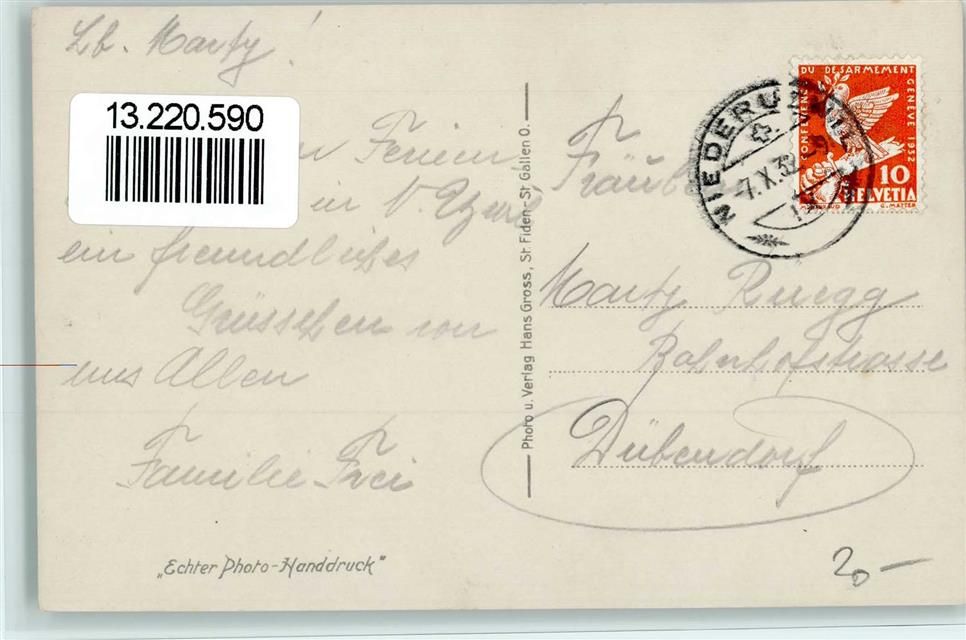 Lb. Marty!
13.220.590
Ferien
in
ein freundliches
Grüsschen von
uns Allen
Familie Frei
"Echter Photo-Handdruck"
Photo u. Verlag Hans Gross, St. Fiden-St. Gallen O.
CONFERENCE DU DESARMEMENT GENEVE 1932
10
HELVETIA
G. MATTER
7.X.32
Fräulein
Marty Rüegg
Bahnhofstrasse
Dübendorf
20 —